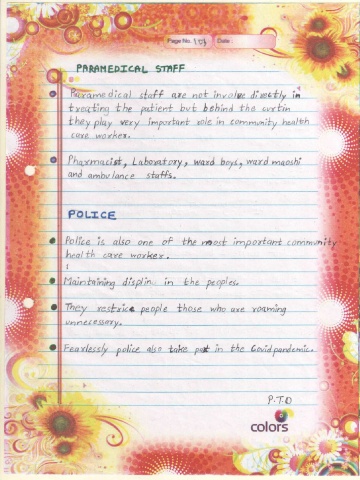 Page No. Date
PARAMEDICAL STAFF
Paramedical staff are not involve directly in
treating the patient but behind the curtin
they play very important role in community health
care worker.
Pharmacist, Laboratory, ward boys, ward maoshi
and ambulance staffs.
POLICE
Police is also one of the most important community
health care worker.
Maintaining displine in the peoples.
They restrice people those who are roaming
unnecessary.
Fearlessly police also take part in the Covid pandemic.
P.T.O
colors